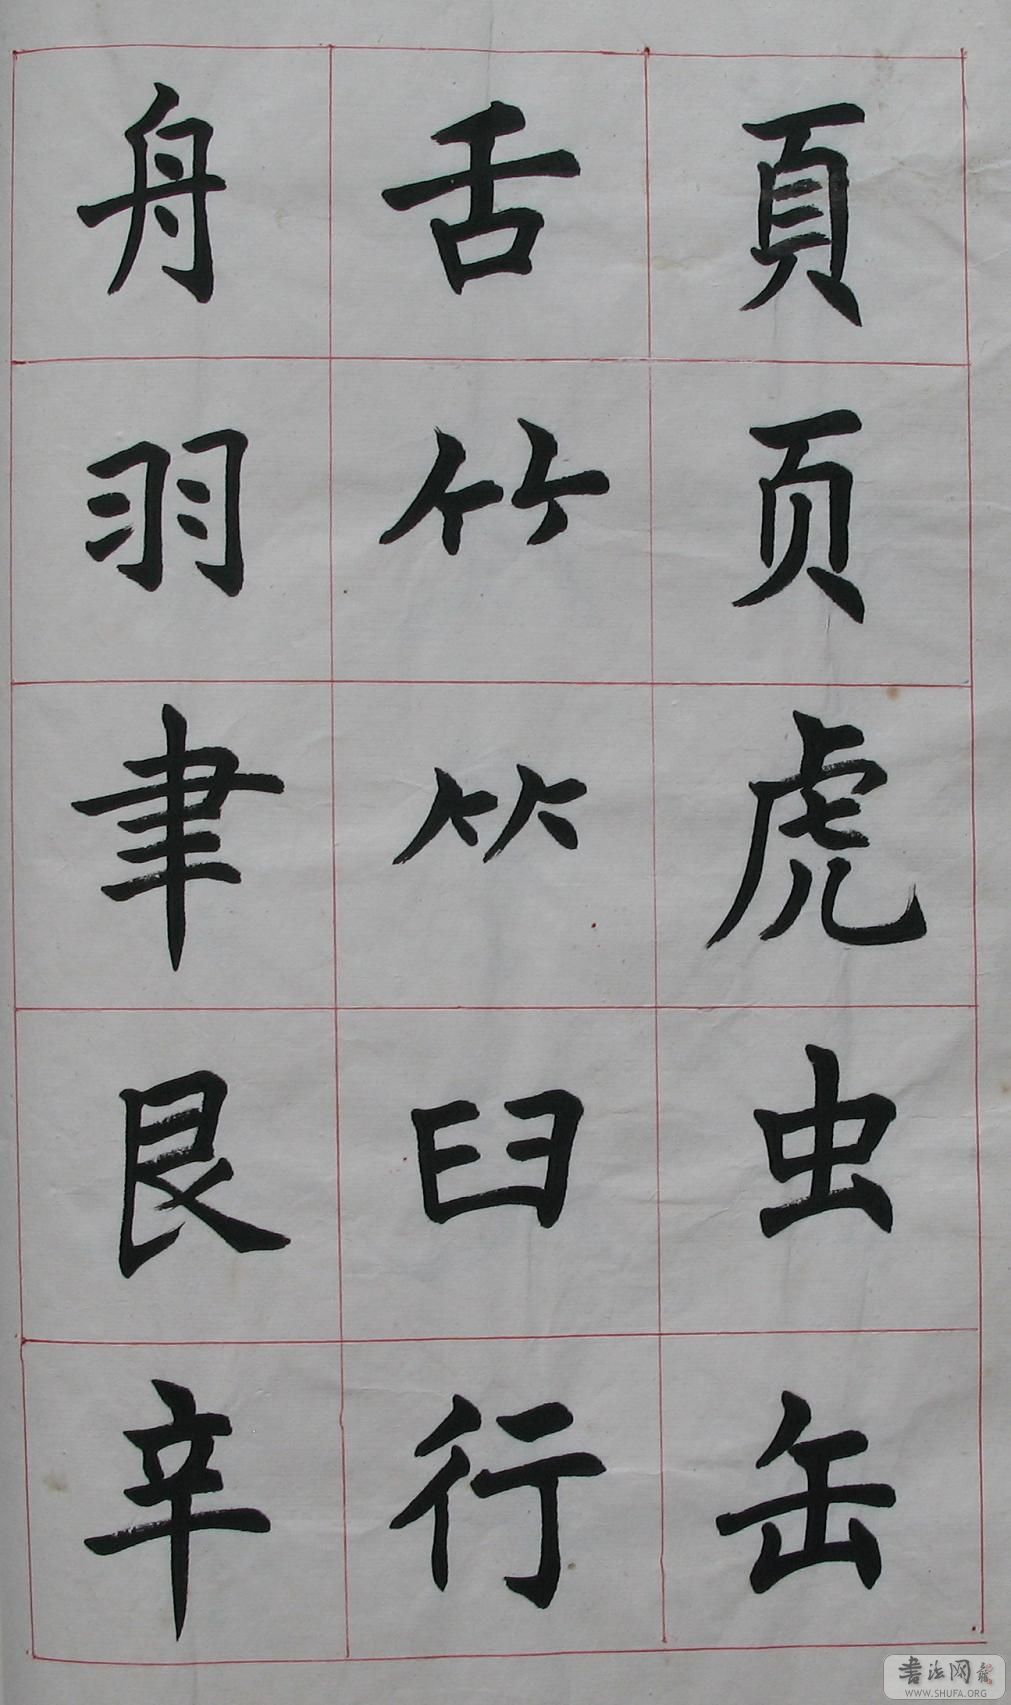 頁页虎虫缶
舌竹⺮臼行
舟羽聿艮辛
书法网
WWW.SHUFA.ORG